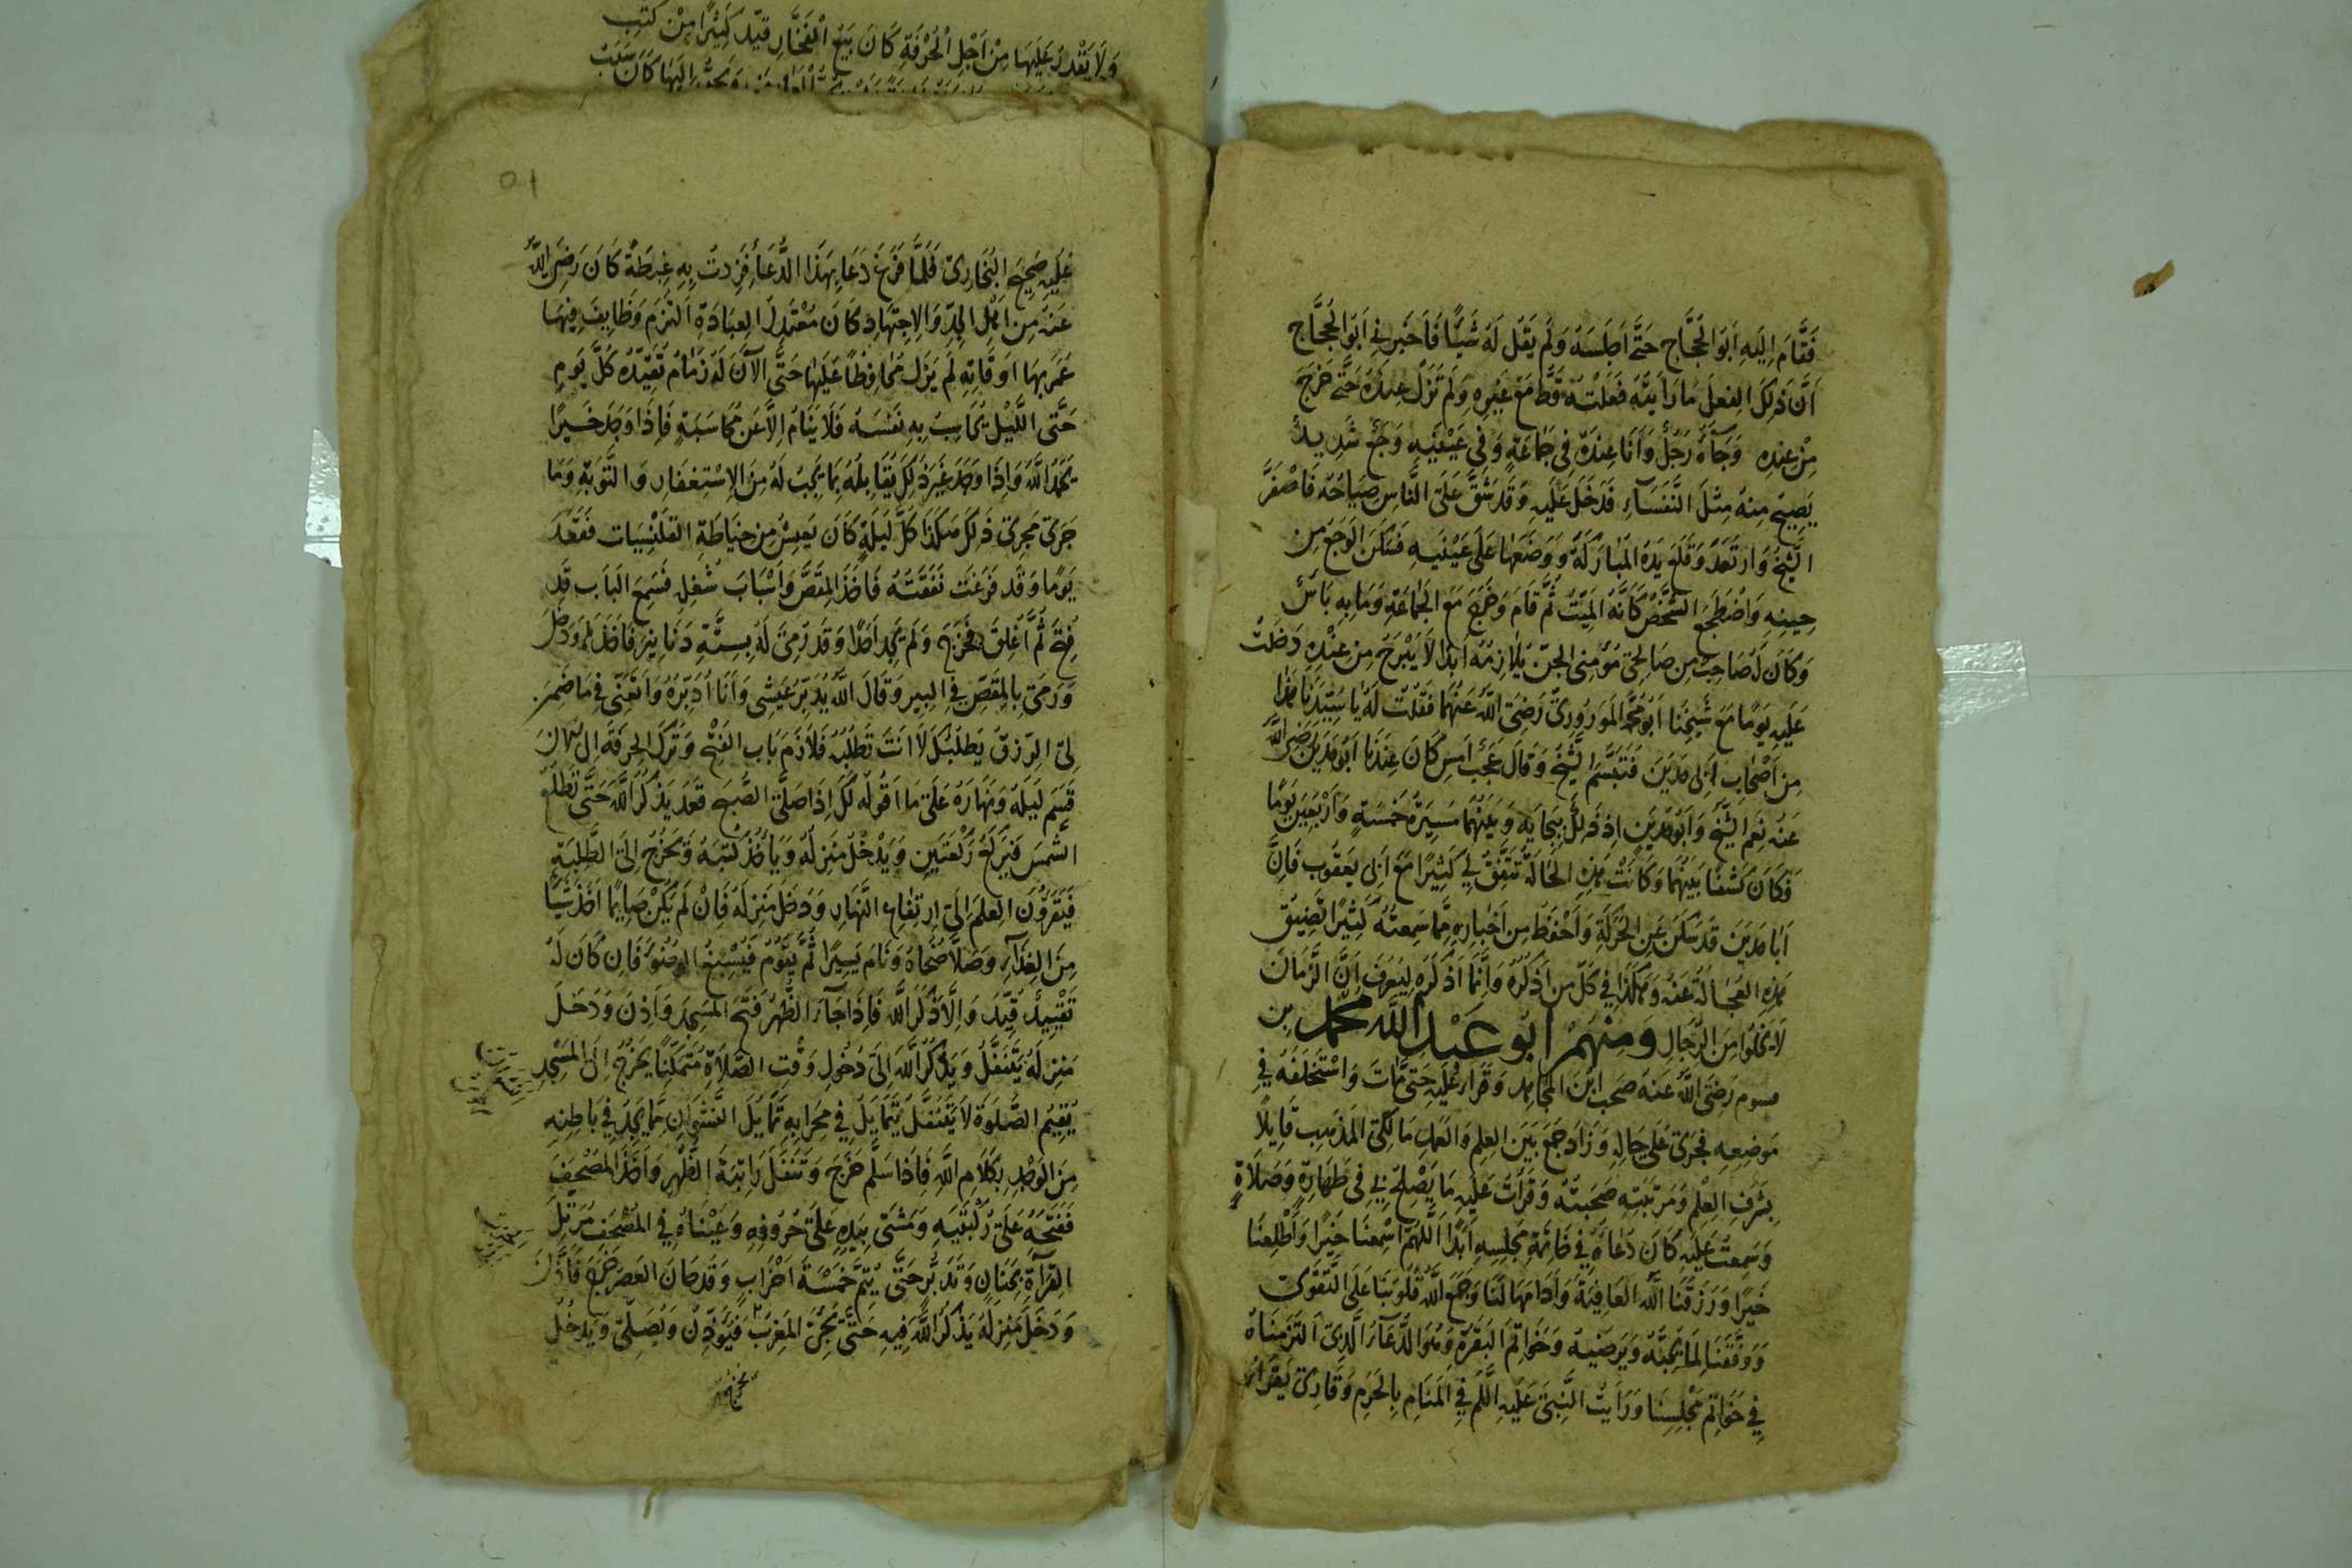 فَقَامَ اِلَيهِ اَبُو الحَجَّاجِ حَتَّى اَجلَسَهُ وَلَم يَقُل لَهُ شَيئًا فَاَخبَرنِي اَبُو الحَجَّاج
اَنَّ ذَلِكَ الفِعلَ مَا رَاَيتُه فَعَلَتهُ قَطُّ مَعَ غَيرِه وَلَم نَزَل عِندَهُ حَتَّى خَرَجَ
مِنْ عِندِه وَجَآءَهُ رَجُلٌ وَاَنَا عِندَهُ فِي جَمَاعَةٍ وَفِي عَيْنَيهِ وَجَعٌ شَدِيدٌ
يَصِيحُ مِنهُ مِثلَ النُّفَسَآءِ فَدَخَلَ عَلَيهِ وَقَد شَقَّ عَلَى النَّاسِ صِيَاحُه فَاصْفَرَّ
الشَّيخُ وَارتَعَدَ وَقَلَعَ يَدَهُ المُبَارَكَةَ وَوَضَعَهَا عَلَى عَيْنَيهِ فَسَكَنَ الوَجَعُ مِن
حِينِهِ وَاضْطَجَعَ الشَّخصُ كَاَنَّهُ المَيِّتُ ثُمَّ قَامَ وَخَرَجَ مَعَ الجَمَاعَةِ وَمَا بِهِ بَاسٌ
وَكَانَ لَهُ صَاحِبٌ مِن صَالِحِي مُؤمِنِي الجِنّ يُلَازِمُهُ اَبَدًا لَا يَبْرَحُ مِن عِنْدِهِ دَخَلتُ
عَلَيهِ يَومًا مَعَ شَيخِنَا اَبُو مُحَمَّد المَورُورِيّ رَضِيَ اللّٰهُ عَنهُمَا فَقُلتُ لَهُ يَا سَيِّدَنَا هَذَا
مِن اَصْحَابِ اَبِي مَدْيَنَ فَتَبَسَّمَ الشَّيخُ وَقَالَ عَجَبٌ اَمسِ كَانَ عِندَنَا اَبُو مَديَنَ رَضِيَ اللّٰهُ
عَنهُ نِعمَ الشَّيخُ وَاَبُو مَديَنَ اِذ ذَلِكَ بِبِجَايَه وَبَينَهُمَا مَسِيرَةُ خَمسَةٍ وَاَرْبَعِينَ يَومًا
فَكَانَ كَشفًا بَينَهُمَا وَكَانَتْ هَذِهِ الحَالَةُ تَتَّفِقُ لِي كَثِيرًا مَعَ اَبِي يَعقُوب فَاِنَّ
اَبَا مَديَن قَد سَكَنَ عَنِ الحَرَكَةِ وَاَحْفَظُ مِن اَخبَارِه مِمَّا سَمِعتُهُ كَثِيرًا تَضِيقُ
هَذِهِ العُجَالَةُ عَنهُ وَهَكَذَا فِي كُلِّ مَن اَذكُرُهُ وَاِنَّمَا اَذكُرُهُ لِيُعرَفَ اَنَّ الزَّمَانَ
لَا يَخلُوا مِنَ الرِّجَالِ وَمِنْهُمْ اَبُو عَبْدِ اللّٰهِ مُحَمَّد بن
قسوم رَضِيَ اللّٰهُ عَنهُ صَحِبَ ابنَ المُجَاهِد وَقَرَاَ عَلَيهِ حَتَّى مَاتَ وَاسْتَخلَفَهُ فِي
مَوضِعِه فَجَرَى عَلَى حَالِهِ وَزَادَ جَمَعَ بَينَ العِلمِ وَالعَمَلِ مَالِكِيّ المَذهَبِ قَايِلًا
بِشَرَفِ العِلْمِ وَمَرتَبَتِه صَحِبتُهُ وَقَرَاتُ عَلَيهِ مَا يَصْلحُ بِي فِي طَهَارَةٍ وَصَلَاةٍ
وَسَمِعتُ عَلَيهِ كَانَ دُعَاؤُهُ فِي خَاتِمَةِ مَجلِسِهِ اَبَدًا اَللّٰهُمَّ اَسْمِعنَا خَيرًا وَاَطْلِعنَا
خَيرًا وَرَزَقَنَا اللّٰهُ العَافِيَةَ وَاَدَامَهَا لَنَا وَجَمَعَ اللّٰهُ قُلُوبَنَا عَلَى التَّقوَى
وَوَفَّقَنَا لِمَا يُحِبُّهُ وَيَرضَيهِ وَخَوَاتِمَ البَقَرَةِ وَهُوَ الدُّعَآءُ الَّذِي التَزَمنَاهُ
فِي خَوَاتِمِ مَجْلِسِنَا وَرَاَيتُ النَّبِيَّ عَلَيهِ السَّلَم فِي المَنَامِ بِالحَرَمِ وَقَارِئ يَقرَاُ
وَلَا يَقْدِرُ عَلَيهَا مِنْ اَجْلِ الْحُرْفَةِ كَانَ بَيعُ الْفَخَّارِ قَيَّدَ كَثِيرًا مِنْ كُتُبِ
عَلَيهِ صَحِيحَ البُخَارِيّ فَلَمَّا فَرَغَ دَعَا بِهَذَا الدُّعَآءِ فَزِدتُ بِهِ غِبطَةً كَانَ رَضِيَ اللّٰهُ
عَنهُ مِن اَهْلِ الجِدِّ وَالاِجتِهَادِ كَانَ مُعْتَدِلَ العِبَادَةِ التَزَمَ وَظَايِفَ فِيهَا
عَمَرَ بِهَا اَوقَاتِهِ لَم يَزَل مُحَافِظًا عَلَيهَا حَتَّى الآنَ لَهُ زَمَامٌ تَقَيّدُه كُلَّ يَومٍ
حَتَّى اللَّيْلِ يُحَاسِبُ بِهِ نَفسَهُ فَلَا يَنَامُ اِلَّا عَن مُحَاسَبَةٍ فَاِذَا وَجَدَ خَيرًا
يَحمَدُ اللّٰهَ وَاِذَا وَجَدَ غَيرَ ذَلِكَ يُقَابِلُهُ بِمَا يَجِبُ لَهُ مِنَ الاِسْتِغفَارِ وَالتَّوبَةِ وَمَا
جَرَى مَجرَى ذَلِكَ هَكَذَا كُلَّ لَيلَةٍ كَانَ يَعِيشُ مِن خِيَاطَةِ القَلَنْسِيَات فَقَعَدَ
يَومًا وَقَد فَرَغَت نَفَقَتُهُ فَاَخَذَ المِقَصَّ وَاَسْبَابَ شُغلِهِ فَسَمِعَ البَابَ قَد
فُتِحَ ثُمَّ اُغلِقَ فَخَرَجَ وَلَم يَجِد اَحَدًا وَقَد رُمِيَ لَهُ بِسِتَّةِ دَنَانِيرَ فَاَخَذَهَا وَدَخَلَ
وَرَمَى بِالمِقَصِّ فِي البِير وَقَالَ اللّٰهُ يُدَبِّرُ عَيشِي وَاَنَا اُدَبِّرُهُ وَاَتعَنَّى فِي مَا ضُمِنَ
لِي الرِّزقُ يَطلُبُكَ لَا اَنتَ تَطلُبُه فَلَازَمَ بَابَ الفَتحِ وَتَرَكَ الحِرفَةَ اِلَى الآنَ
قَسَمَ لَيلَهُ وَنَهَارَهُ عَلَى مَا اَقُولُه لَكَ اِذَا صَلَّى الصُّبحَ قَعَدَ يَذكُرُ اللّٰهَ حَتَّى تَطلُعَ
الشَّمسُ فَيَركَعُ رَكعَتَينِ وَيَدْخُلُ مَنزِلَهُ وَيَأخُذُ كُتُبَهُ وَيَخرُجُ اِلَى الطَّلَبَةِ
فَيَقرَؤُنَ العِلمَ اِلَى ارتِفَاعِ النَّهَارِ وَدَخَلَ مَنزِلَهُ فَاِنْ لَم يَكُنْ صَايِمًا اَخَذَ شَيئًا
مِنَ الغِذَآءِ وَصَلَّا ضُحَاهُ وَنَامَ يَسِيرًا ثُمَّ يَقُومُ فَيُسْبِغُ الوُضُوَء فَاِن كَانَ لَهُ
تَقْيِيدٌ قَيَّدَ وَاِلَّا ذَكَرَ اللّٰهَ فَاِذَا جَآءَ الظُّهرُ فَتَحَ المَسجِدَ وَاَذَّنَ وَدَخَلَ
مَنزِلَهُ يَتَنَفَّلُ وَيَذكُرُ اللّٰهَ اِلَى دُخُولِ وَقْتِ الصَّلَاةِ مُتَمَكِّنًا يَخرُجُ اِلَى المَسْجِدِ
يُقِيمُ الصَّلٰوةَ لَا يَتَنَفَّلُ يَتَمَايَلُ فِي مِحرَابِهِ تَمَايُلَ النَّشْوَانِ مِمَّا يَجِدُ فِي بَاطِنِهِ
مِنَ الوَجدِ بِكَلَامِ اللّٰهِ فَاِذَا سَلَّمَ خَرَجَ وَتَنَفَّلَ رَاتِبَةَ الظُّهْرِ وَاَخَذَ المُصْحَفَ
فَفَتَحَهُ عَلَى رُكْبَتَيهِ وَمَشَى بِيَدِهِ عَلَى حُرُوفِهِ وَعَيْنَاهُ فِي المُصْحَفِ يُرَتِّلُ
القِرَاَةَ بِحَنَانٍ وَتَدَبُّرٍ حَتَّى يُتِمَّ خَمْسَةَ اَحْزَابٍ وَقَد حَانَ العَصرُ خَرَجَ فَاَذَّنَ
وَدَخَلَ مَنزِلَهُ يَذكُرُ اللّٰهَ فِيهِ حَتَّى يَجِيَ المَغرِبُ فَيُؤَذِّنُ وَيُصَلِّي وَيَدخُلُ